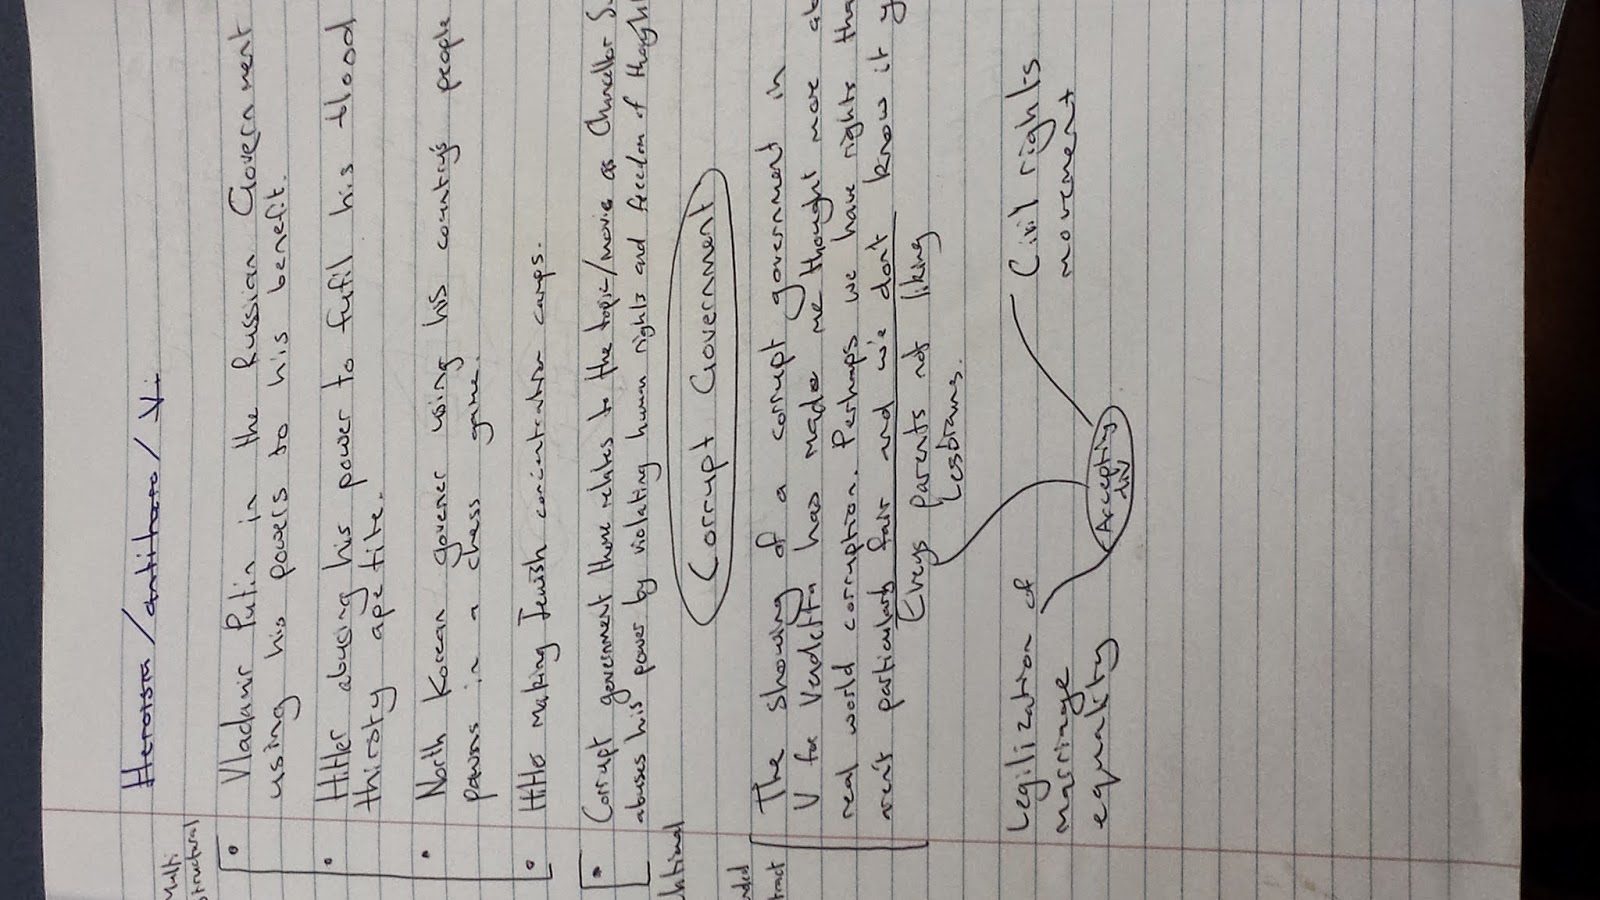 Heroism / antihero / Vi
Multi
structural
Vladamir Putin in the Russian Government
using his powers to his benefit.
Hitler abusing his power to fulfil his blood
thirsty apetite.
North Korean governer using his country's people
pawns in a chess game.
Hitler making Jewish concentration camps.
Corrupt government there relates to the topic/movie as Chancellor S
abuses his power by violating human rights and freedom of thought
lational
Corrupt Government
nded
tract
The showing of a corrupt government in
V for Vendetta has made me thought more ab
real world corruption. Perhaps we have rights tha
aren't particularly fair and we dont know it y
Eveys parents not liking
lesbians.
Civil rights
movement
Accepting
div
Legilization of
marriage
equality